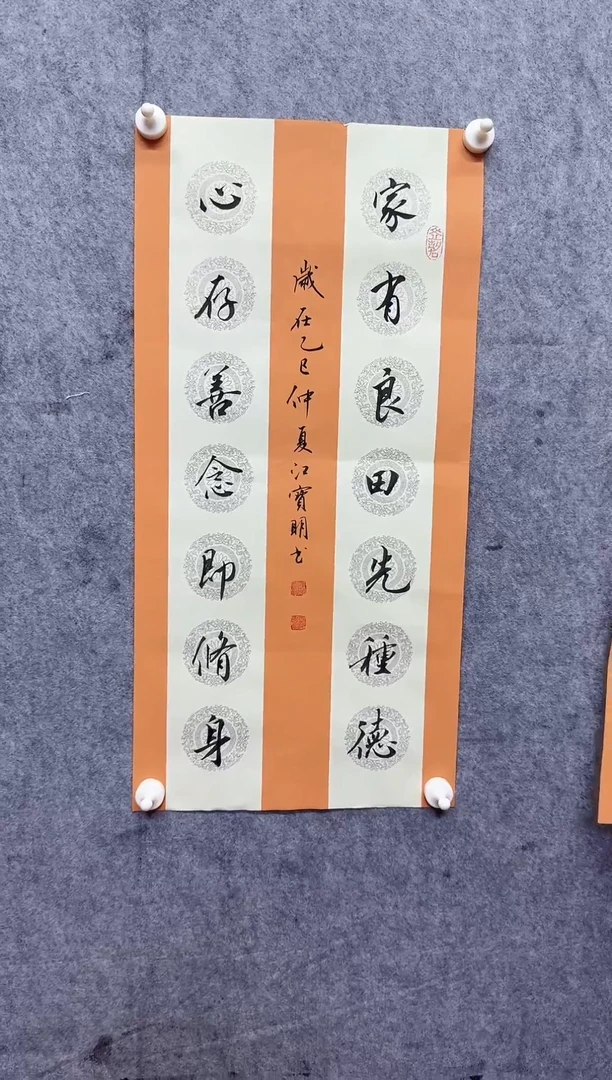 家有良田先種德
心存善念即脩身
歲在乙巳仲夏江寶明书